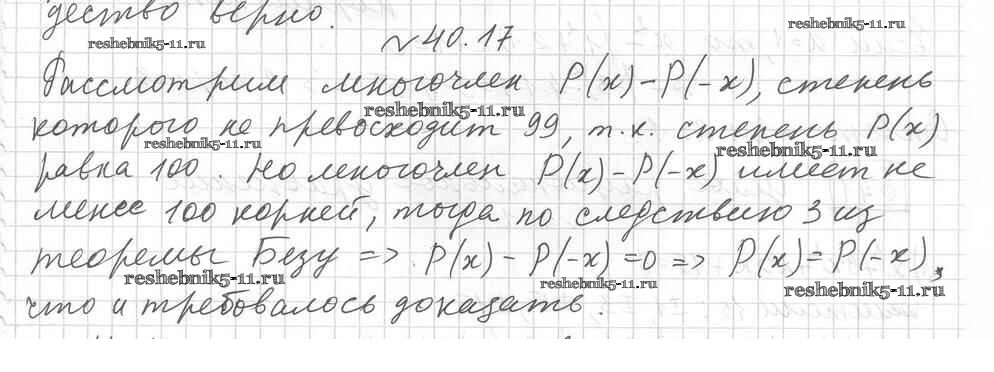 дество верно.
reshebnik5-11.ru
reshebnik5-11.ru
№ 40.17
Рассмотрим многочлен P(x)-P(-x), степень
reshebnik5-11.ru
которого не превосходит 99, т.к. степень P(x)
reshebnik5-11.ru
reshebnik5-11.ru
равна 100. Но многочлен P(x)-P(-x) имеет не
менее 100 корней, тогда по следствию 3 из
теоремы Безу => P(x) - P(-x) =0 => P(x)=P(-x),
reshebnik5-11.ru
reshebnik5-11.ru
reshebnik5-11.ru
что и требовалось доказать.